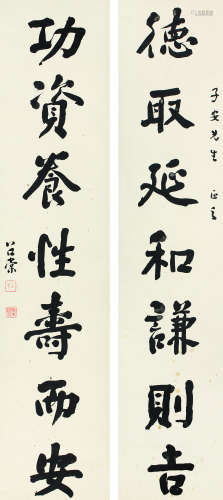 德取延和謙則吉
子安先生 正之
功資養性壽而安